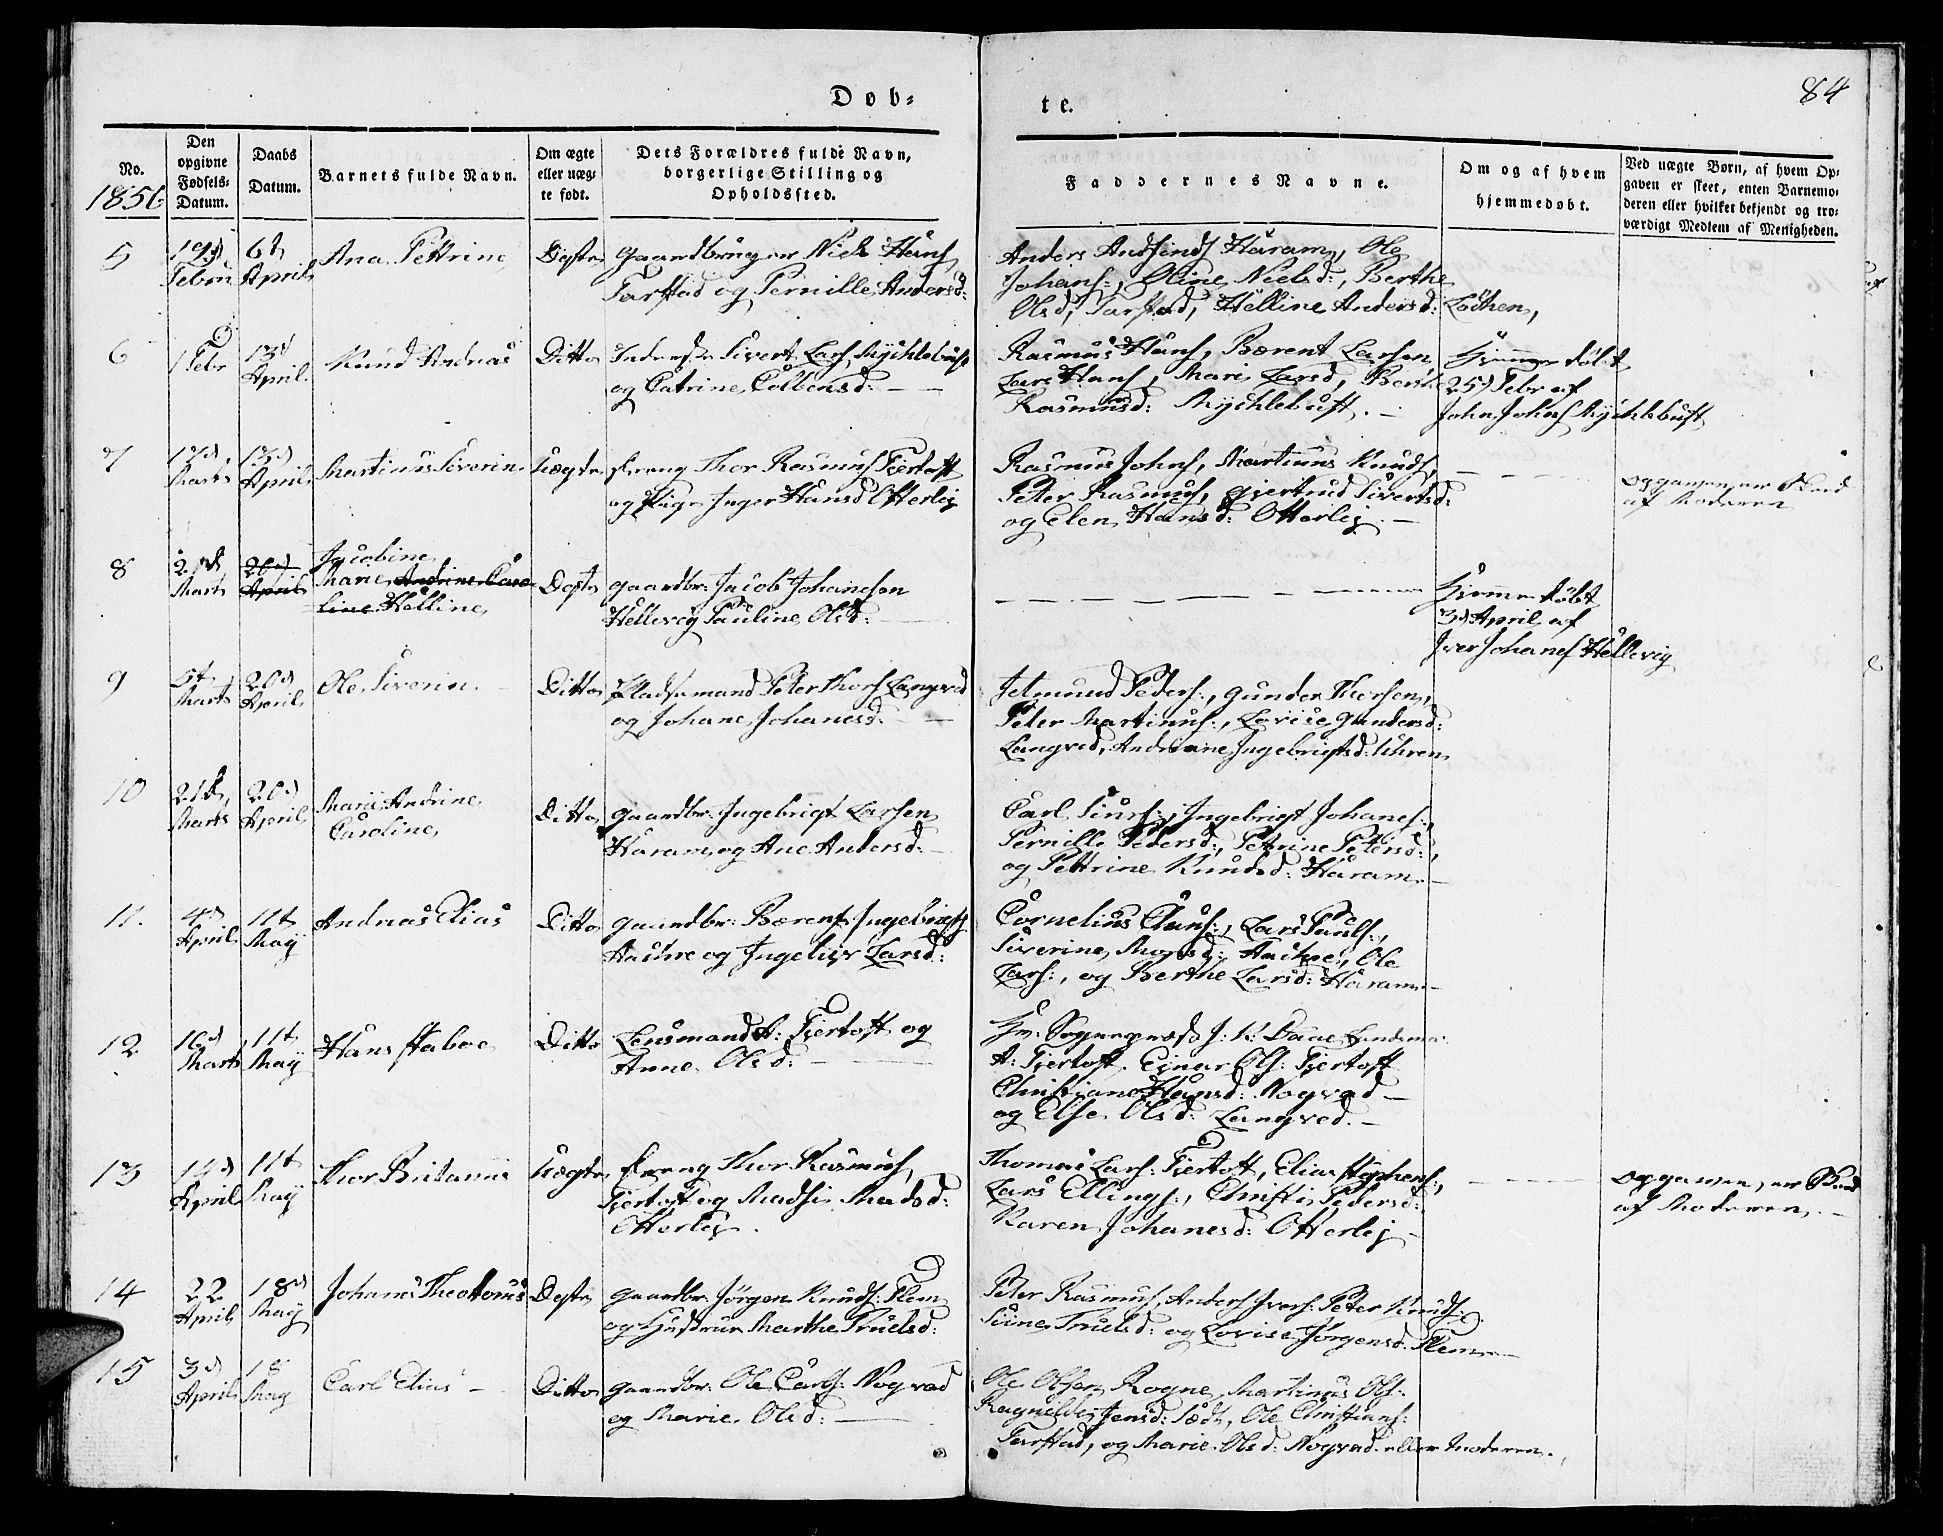 Døb=
te.
84
No.
1856
Den
opgivne
Fødsels=
Datum.
Daabs
Datum.
Barnets fulde Navn.
Om ægte
eller uæg=
te født.
Dets Forældres fulde Navn,
borgerlige Stilling og
Opholdssted.
Faddernes Navne.
Om og af hvem
hjemmedøbt.
Ved uægte Børn, af hvem Op=
gaven er skeet, enten Barnemo=
deren eller hvilket bekjendt og tro=
værdigt Medlem af Menigheden.
5
April
Ana Pettrine
Gaardbruger Niels Hans
Tarstad og Pernille Andersd:
Ole
Johans:, Oline Nielsd:, Berthe
Olsd, Tarstad, Helline Andersd: Løthen,
6
1 Febr
13d
April
Knud Andreas
Ditto
Sivert Lars Mychlebust
og Catrine
Rasmus Hans, Bærent Larsen
Lars Hans, Mari Larsd, Berthe
Rasmusd: Mychlebust.
Hjemmedøbt
25d Febr af
John Johns Mychlebust
7
17d
Marts
13d
April
Martinus Siverin
Uægte
Thor Rasmus Fjertoft
og Pige Inger Hansd Otterlej
Rasmus Johns, Martinus Knuds,
Peter Rasmus, Gjertrud Sivertsd:
og Elen Hansd: Otterlej.
af Moderen
8
21d
Marts
20d
April
Jacobine
Marie Andrine Caro
line Helline
gaardbr: Jacob Johansen
Hellevig Pauline Olsd:
Hjemmedøbt
3d April af
Iver Johanes Hellevig
9
Marts
20d
April
Ole Siverin
Ditto
Pladsemand Peter Thors Langvad
og Johane Johanesd:
Jetmund Peders:, Gunder Thorsen,
Peter Martinus:, Lovise Gundersd:
Langvad, Ingebrigtsd: Uhren
10
21d
Marts
20d
April
Marie Andrine
Caroline
Ditto
gaardbr: Ingebrigt Larsen
Haram og Ane Andersd:
Carl Siurs:, Ingebrigt Johanes:,
Pernille Pedersd:, Petrine Petersd:,
og Pettrine Knudsd: Haram
11.
4d
April
11t
May
Andreas Elias
Ditto
gaardbr: Bærent Ingebrigts
og Ingeliev Larsd:
Cornelius Claus:, Lars Pauls:,
Siverine Ole
Lars:, og Berthe Larsd: Haram
12
16d
Marts
11t
May
Hans Staboe
Ditto
Lensmand A: Fjertoft og
Anne Olsd:
Hr: Sogneprest J: K: Daae
A: Fjertoft. Ejnar Ols: Fjertoft
Christiane Hansd: Nogvad
og Else Olsd: Langvad.
13
14d
April
11t
May
Thor Britanus
Uægte
Thor Rasmus,
Fjertoft og Madsi Madsd:
Otterlej.
Thomas Lars: Fjertoft, Elias Stephens:,
Lars Ellings:, Christi Pedersd:
Karen Johanesd: Otterlej
af Moderen.
14
22
April
18d
May
Johanes Theodorus
gaardbr: Jørgen Knuds: Flem
og Hustrue Marthe Truelsd:
Peter Rasmus, Anders Ivers: Peter Knuds:
Siine Truelsd: og Lovise Jørgensd: Flem
15
3d
April
18
May
Carl Elias
Ditto
gaardbr: Ole Carls: Nogvad
og Marie Olsd:
Ole Olsen Rogne, Martinus Ols:
Ragnilde Jensd: Ole Christians:
Tarstad, og Marie Olsd: Nogvad